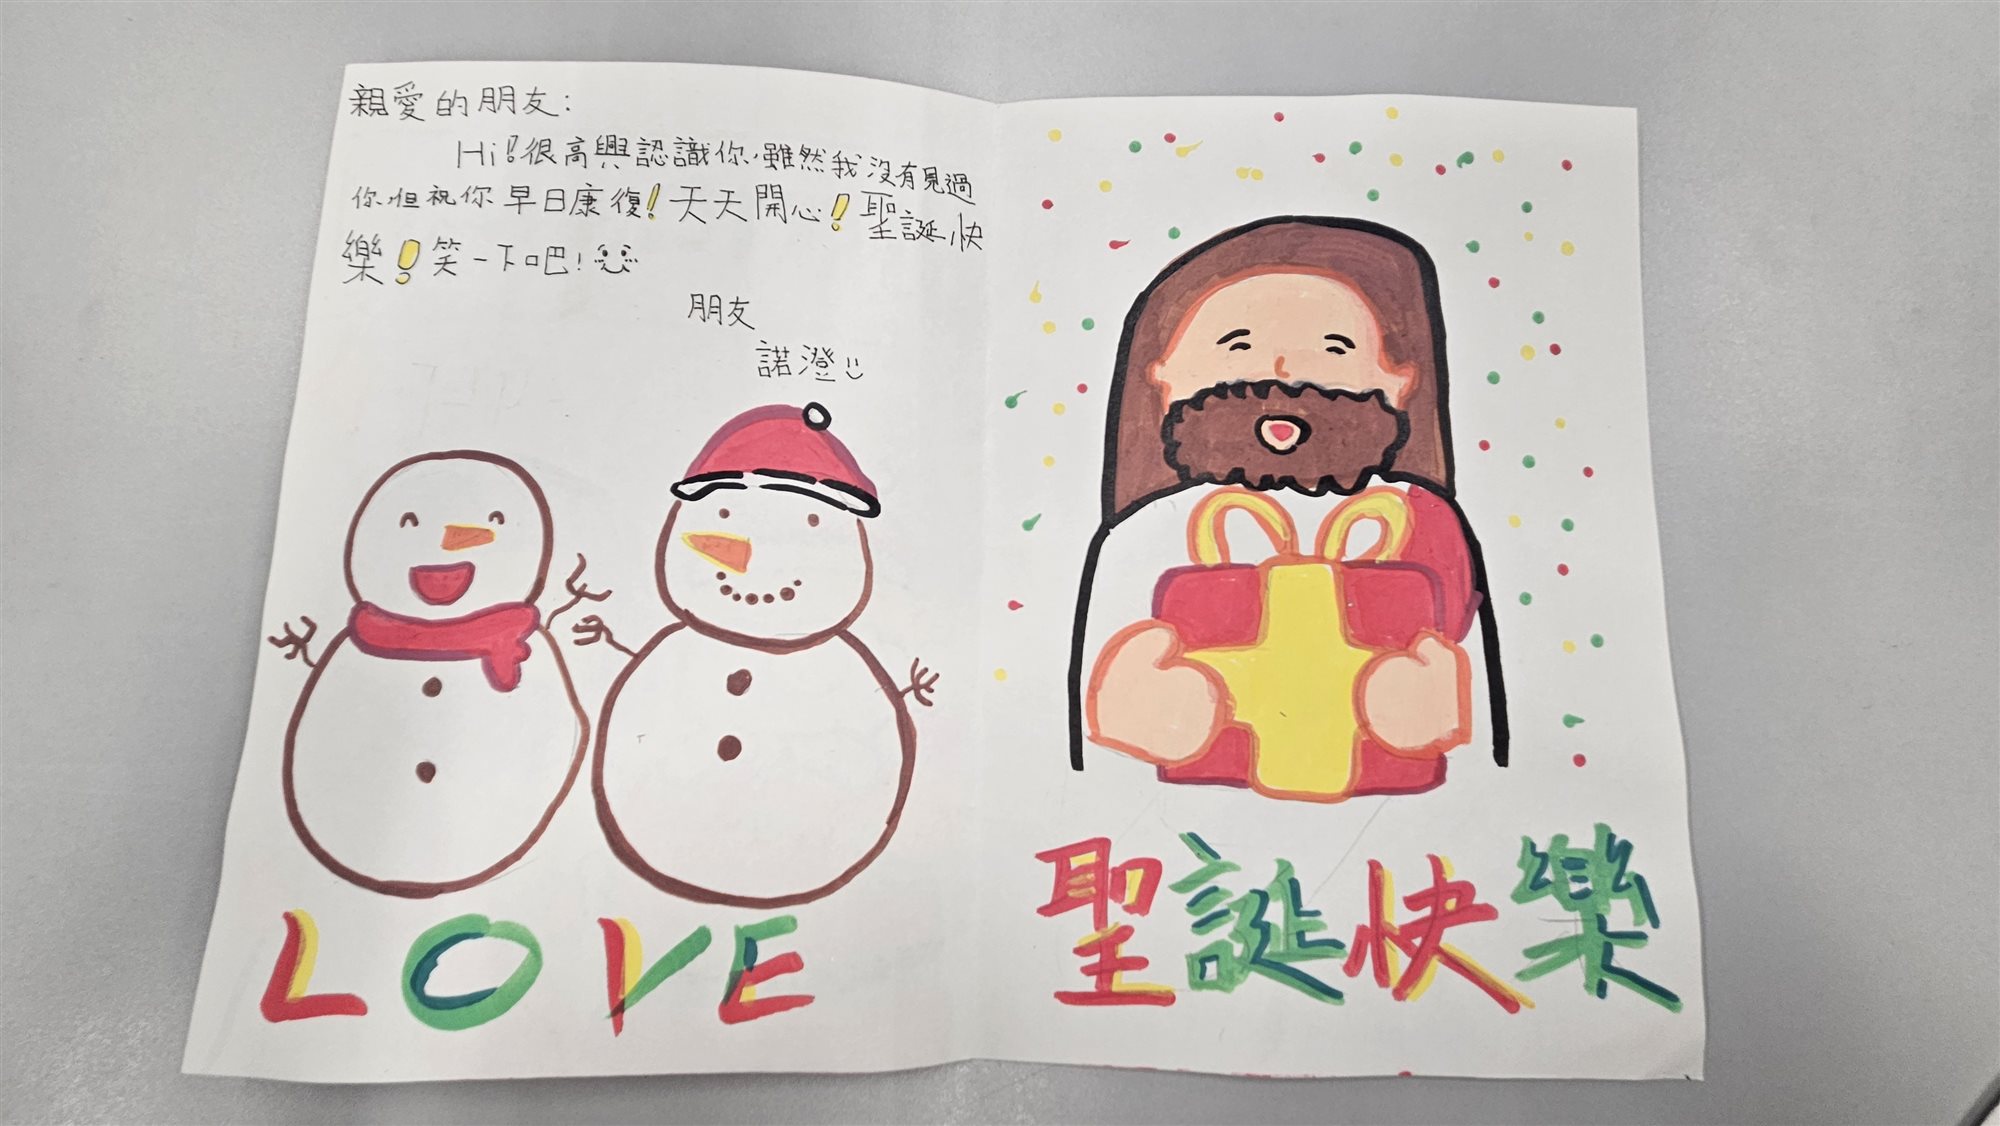 親愛的朋友：
Hi!很高興認識你，雖然我沒有見過
你，但祝你早日康復！天天開心！聖誕快
樂！笑一下吧！
朋友
諾澄
LOVE
聖誕快樂